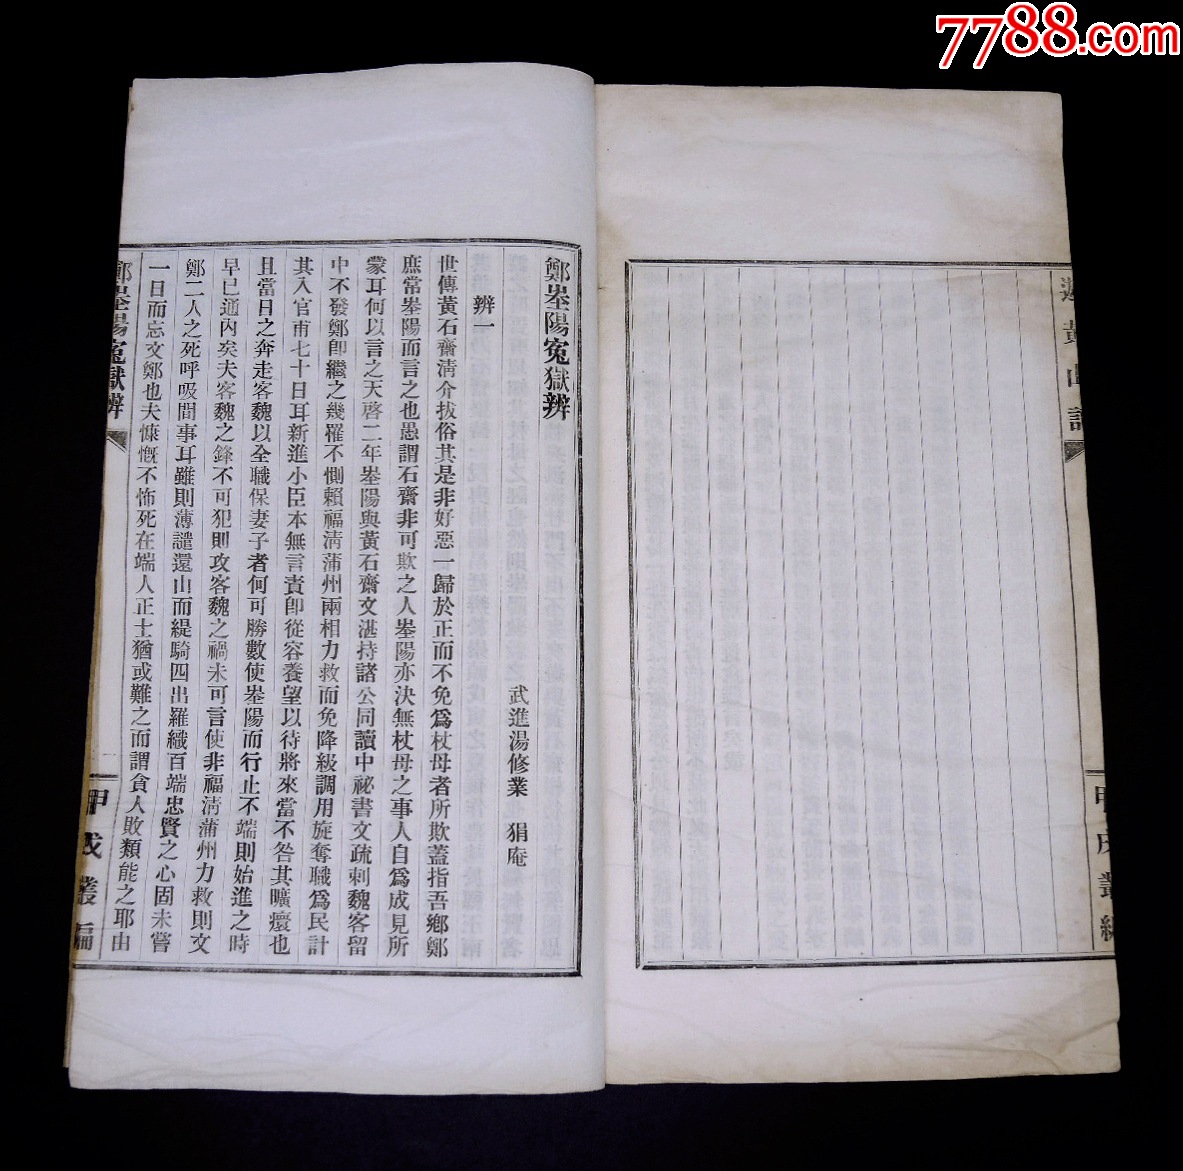 7788.com
遊黃山記
甲戌叢編
鄭峚陽冤獄辨
武進湯修業 狷庵
辨一
世傳黃石齋淸介拔俗其是非好惡一歸於正而不免爲杖母者所欺蓋指吾鄉鄭
庶常峚陽而言之也愚謂石齋非可欺之人峚陽亦決無杖母之事人自爲成見所
蒙耳何以言之天啓二年峚陽與黃石齋文湛持諸公同讀中祕書文疏刺魏客留
中不發鄭卽繼之幾罹不惻賴福淸蒲州兩相力救而免降級調用旋奪職爲民計
其入官甫七十日耳新進小臣本無言責卽從容養望以待將來當不咎其曠瘝也
且當日之奔走客魏以全職保妻子者何可勝數使峚陽而行止不端則始進之時
早已通內矣夫客魏之鋒不可犯則攻客魏之禍未可言使非福淸蒲州力救則文
鄭二人之死呼吸間事耳雖則薄譴還山而緹騎四出羅織百端忠賢之心固未嘗
一日而忘文鄭也夫慷慨不怖死在端人正士猶或難之而謂貪人敗類能之耶由
鄭峚陽冤獄辨
甲戌叢編